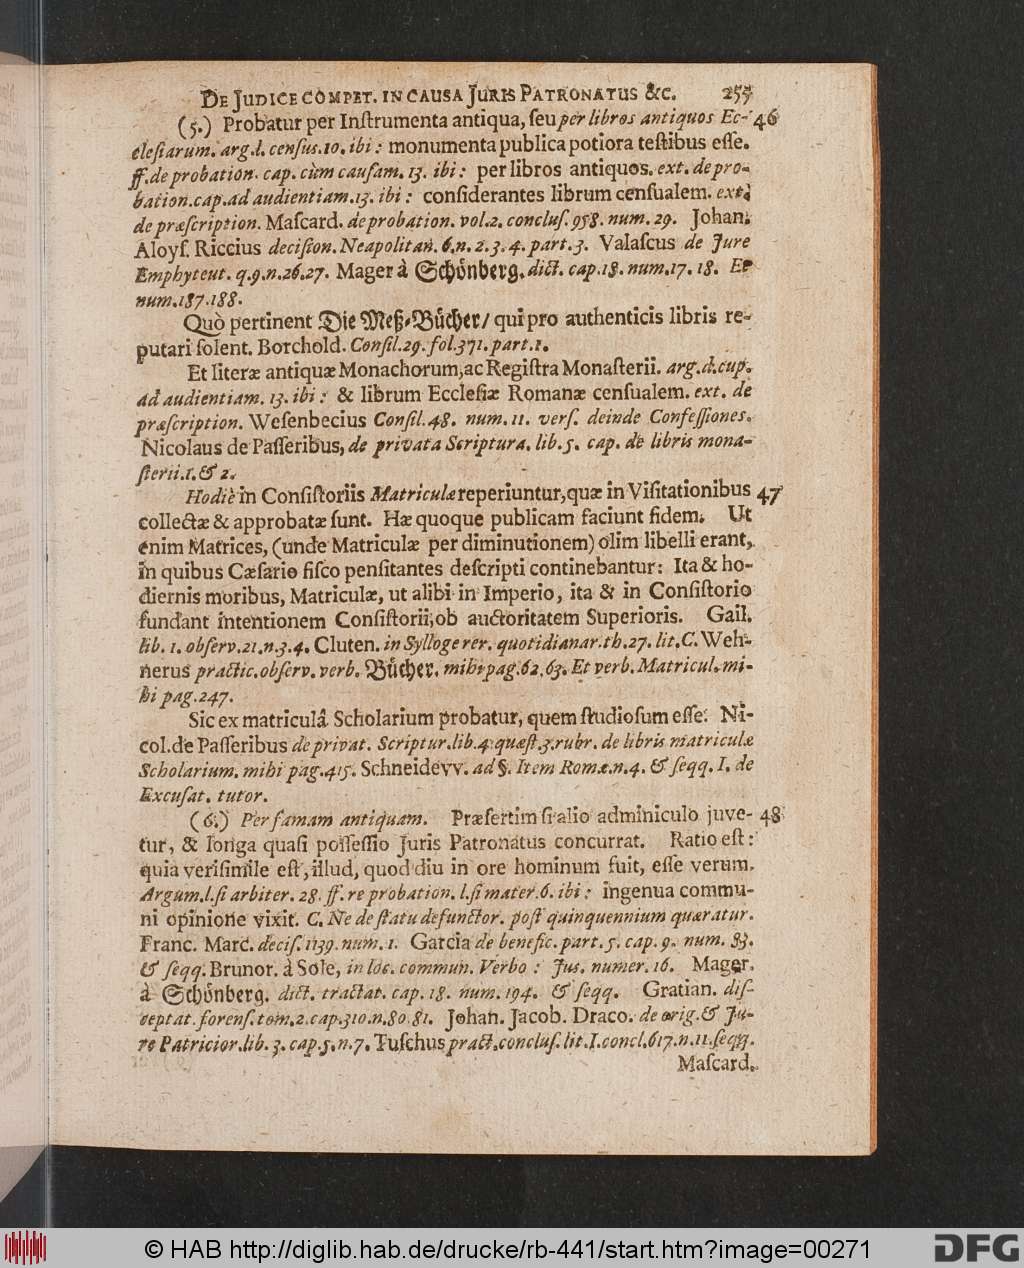 DE JUDICE COMPET. IN CAUSA JURIS PATRONATUS &c. 255
(5.) Probatur per Inſtrumenta antiqua, ſeu per libros antiquos Ec- 46
cleſiarum. arg. l. cenſus. 10. ibi: monumenta publica potiora teſtibus eſſe.
ff. de probation. cap. cùm cauſam. 13. ibi: per libros antiquos. ext. de pro-
bation. cap. ad audientiam. 13. ibi: conſiderantes librum cenſualem. ext.
de præſcription. Maſcard. de probation. vol. 2. concluſ. 958. num. 29. Johan.
Aloyſ. Riccius deciſion. Neapolitan. 6. n. 2. 3. 4. part. 3. Valaſcus de Jure
Emphyteut. q. 9. n. 26. 27. Mager à Schönberg. dict. cap. 18. num. 17. 18. Et
num. 187. 188.
Quò pertinent Die Meß-Bücher/ qui pro authenticis libris re-
putari ſolent. Borchold. Conſil. 29. fol. 371. part. 1.
Et literæ antiquæ Monachorum, ac Regiſtra Monaſterii. arg. d. cap.
ad audientiam. 13. ibi: & librum Eccleſiæ Romanæ cenſualem. ext. de
præſcription. Weſenbecius Conſil. 48. num. 11. verſ. deinde Confeſſiones.
Nicolaus de Paſſeribus, de privata Scriptura. lib. 5. cap. de libris mona-
ſterii. 1. & 2.
Hodiè in Conſiſtoriis Matriculæ reperiuntur, quæ in Viſitationibus 47
collectæ & approbatæ ſunt. Hæ quoque publicam faciunt fidem. Ut
enim Matrices, (unde Matriculæ per diminutionem) olim libelli erant,
in quibus Cæſario fiſco penſitantes deſcripti continebantur: Ita & ho-
diernis moribus, Matriculæ, ut alibi in Imperio, ita & in Conſiſtorio
fundant intentionem Conſiſtorii, ob auctoritatem Superioris. Gail.
lib. 1. obſerv. 21. n. 3. 4. Cluten. in Sylloge rer. quotidianar. th. 27. lit. C. Weh-
nerus practic. obſerv. verb. Bücher. mihi pag. 62. 63. Et verb. Matricul. mi-
hi pag. 247.
Sic ex matriculâ Scholarium probatur, quem ſtudioſum eſſe. Ni-
col. de Paſſeribus de privat. Scriptur. lib. 4. quæſt. 3. rubr. de libris matriculæ
Scholarium. mihi pag. 415. Schneidevv. ad §. Item Romæ. n. 4. & ſeqq. I. de
Excuſat. tutor.
(6.) Per famam antiquam. Præſertim ſi alio adminiculo juve- 48
tur, & longa quaſi poſſeſſio Juris Patronatus concurrat. Ratio eſt:
quia veriſimile eſt, illud, quod diu in ore hominum fuit, eſſe verum.
Argum. l. ſi arbiter. 28. ff. re probation. l. ſi mater. 6. ibi: ingenua commu-
ni opinione vixit. C. Ne de ſtatu defunctor. poſt quinquennium quæratur.
Franc. Marc. deciſ. 1139. num. 1. Garcia de benefic. part. 5. cap. 9. num. 83.
& ſeqq. Brunor. à Sole, in loc. commun. Verbo: Jus. numer. 16. Mager.
à Schönberg. dict. tractat. cap. 18. num. 194. & ſeqq. Gratian. diſ-
ceptat. forenſ. tom. 2. cap. 310. n. 80. 81. Johan. Jacob. Draco. de orig. & Ju-
re Patricior. lib. 3. cap. 5. n. 7. Tuſchus pract. concluſ. lit. I. concl. 617. n. 11. ſeqq.
Maſcard.
© HAB http://diglib.hab.de/drucke/rb-441/start.htm?image=00271
DFG